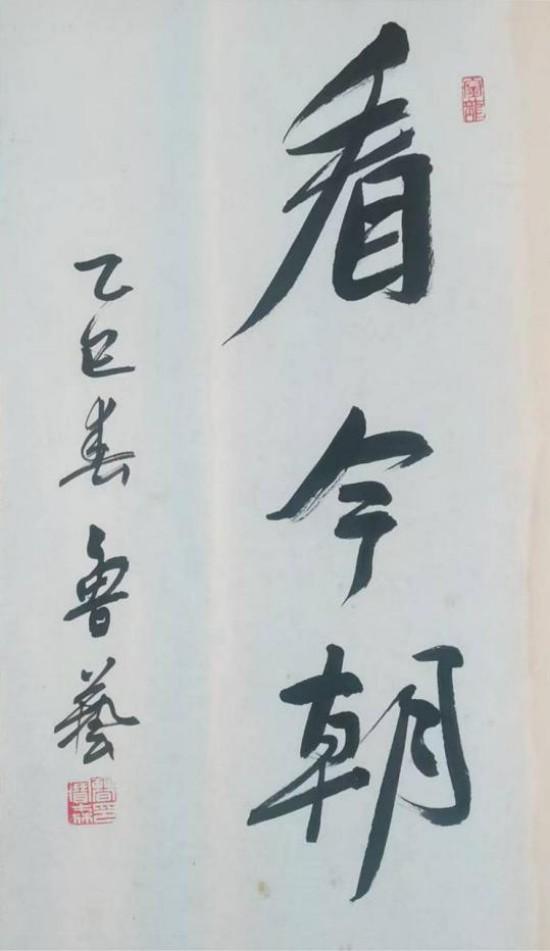 看今朝
乙巳春 鲁藝